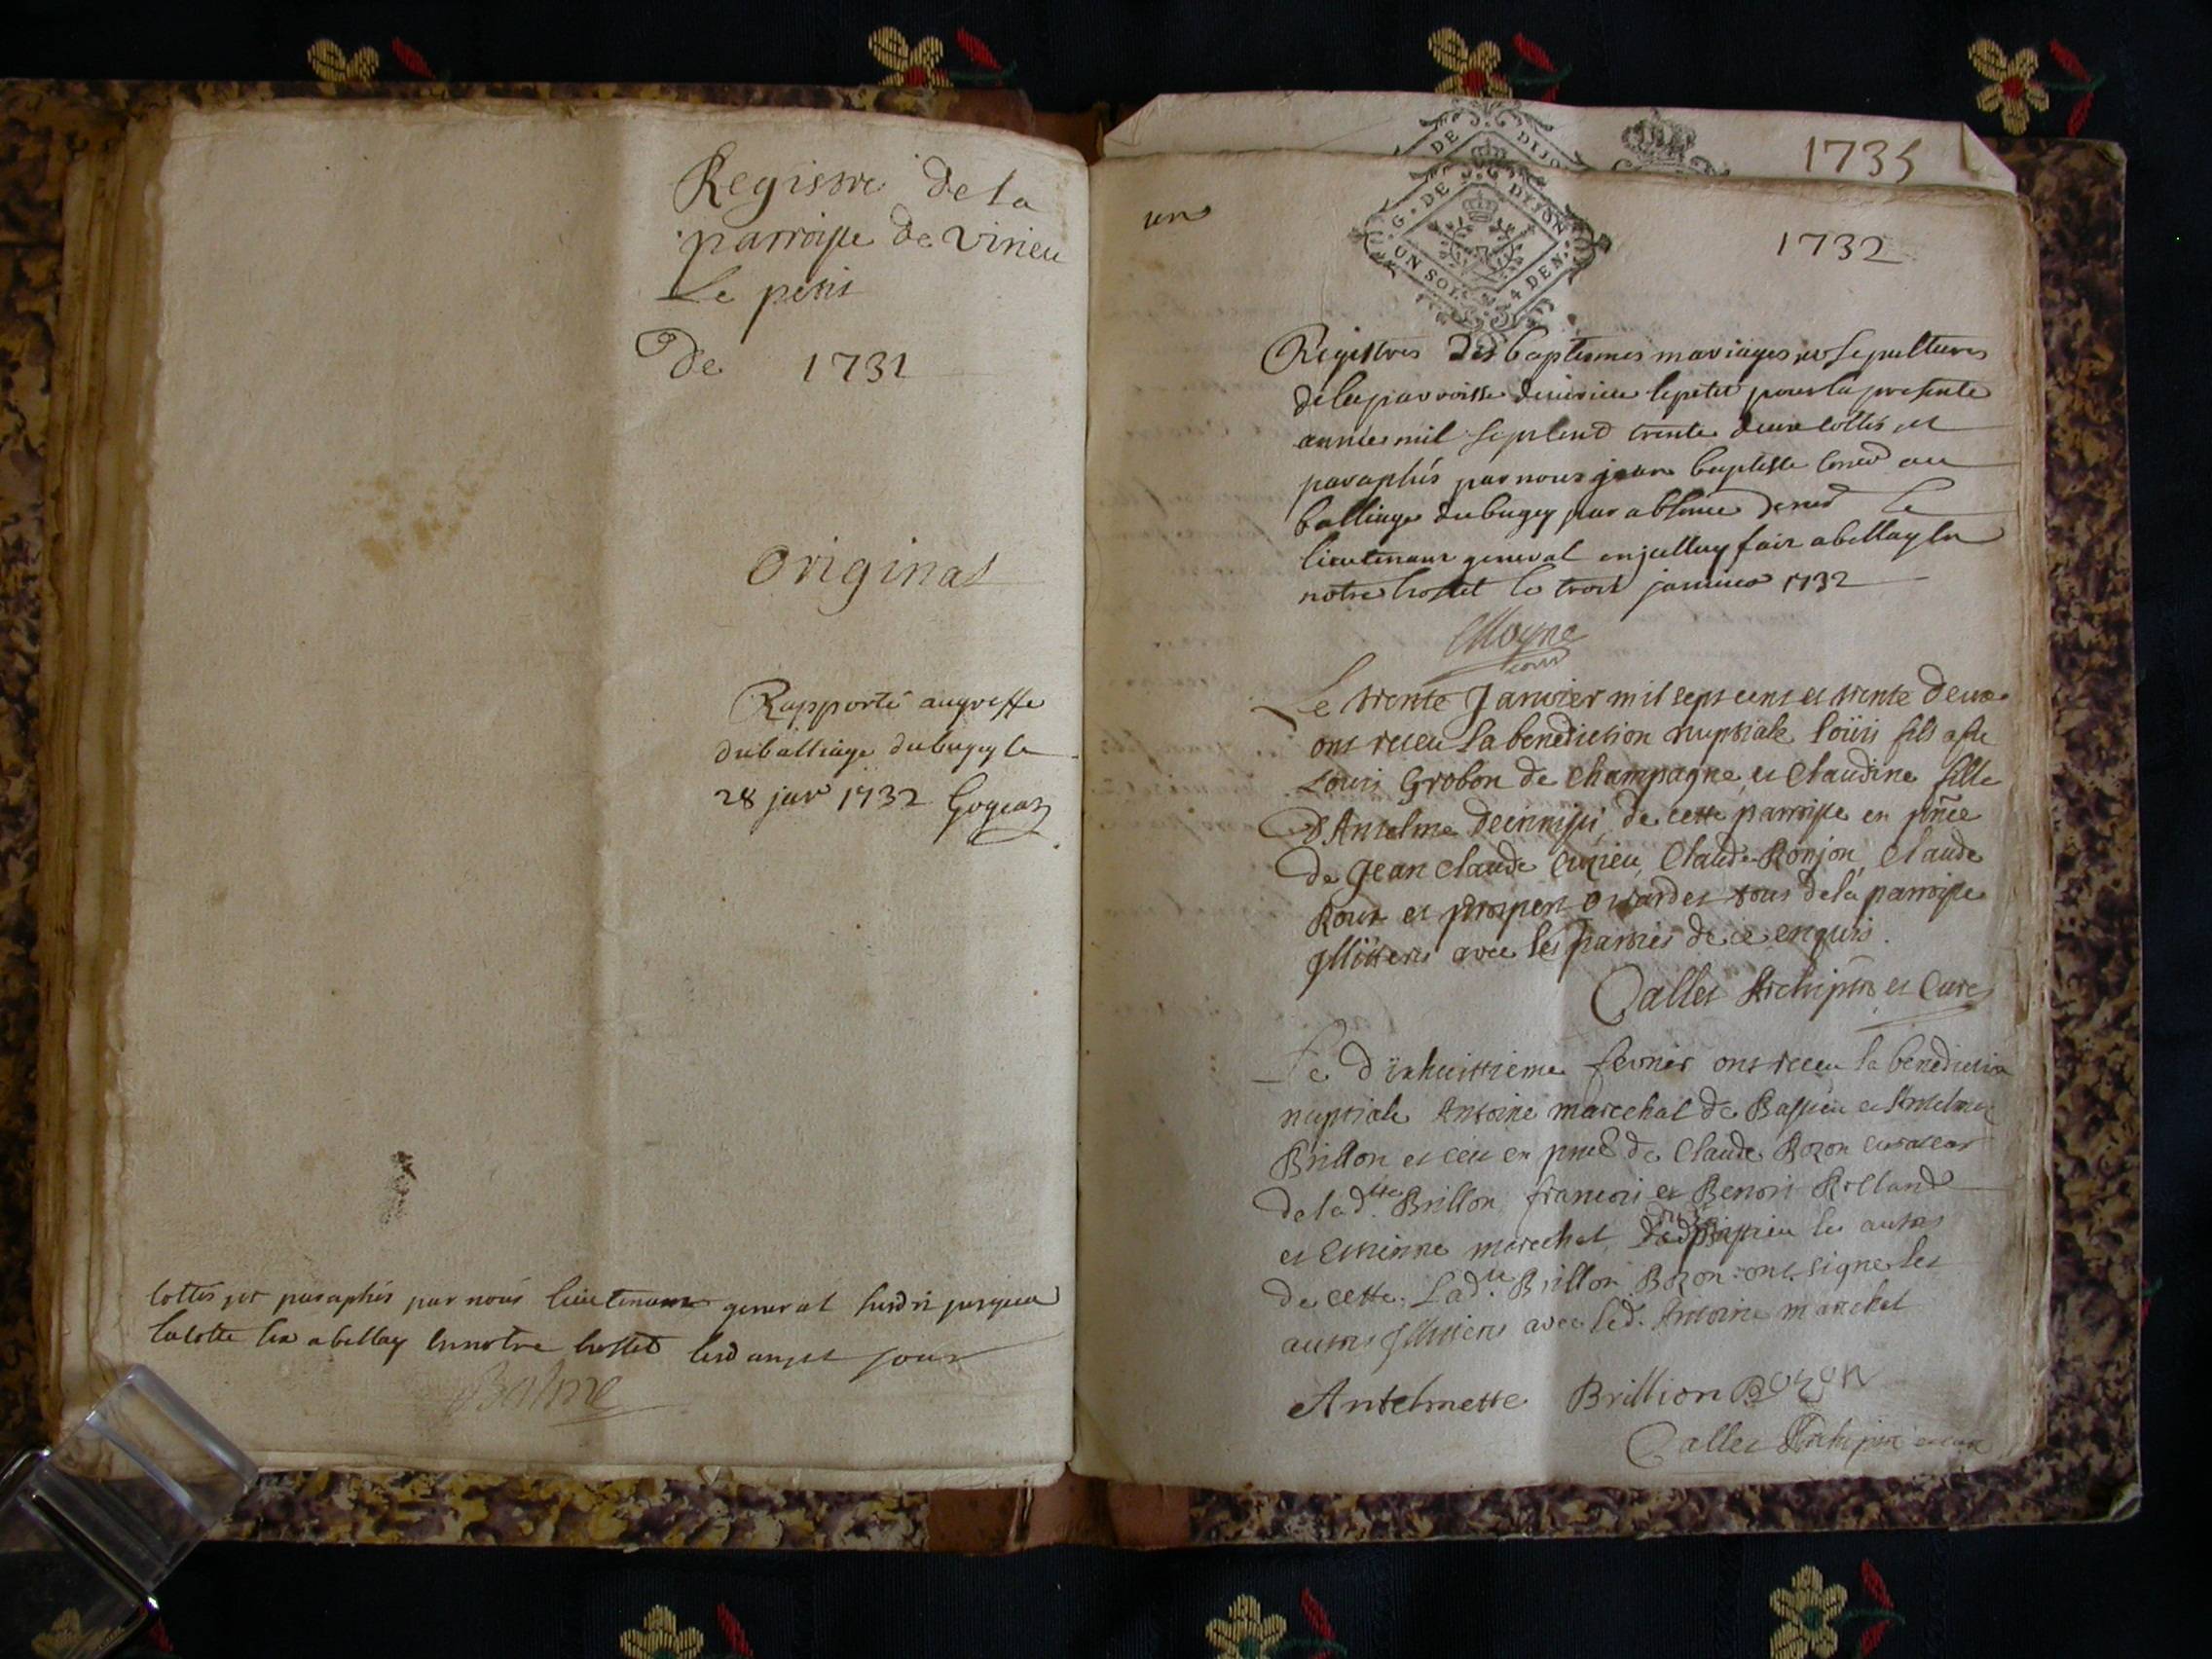 Registre de la
parroisse de virieu
Le petit
De 1731
Original
Rapporté au greffe
du balliage du bugey le
28 janv 1732
cottés et paraphés par nous lieutenant general susdit jusques a
la cotte six a bellay en notre hostel lesd an et jour
Balme
1735
DE DIJO
un
G. DE DIJON
UN SOL 4 DEN.
1732
Registres des baptesmes mariages et sepultures
de la parroisse de virieu le petit pour la presente
année mil sept cent trente deux cottés et
paraphés par nous jean baptiste au
balliage du bugey par absence de
lieutenant general fait a bellay en
notre hostel le trois janvier 1732
Le trente Janvier mil sept cent et trente deux
ont receu la benediction nuptiale loüis fils a fû
Louis Grobon de champagne et Claudine fille
D'Antelme de cette parroisse en pñce
de Jean claude Claude Ronjon, Claude
Roux et tous de la parroisse
Illiteres avec les parties de ce enquis.
Callet Archiptre et Curé
Le dixhuittieme fevrier ont receu la benediction
nuptiale Antoine marechal de Bassieu et Antelmette
Brillon et ceu en pnce de Claude Bozon curateur
de lad.tte Brillon francois et Benoit Rolland
et Etienne marechal, dud. Bassieu les autres
de cette. Lad.tte Brillon Bozon ont signe les
autres Illiteres avec led. Antoine marechal
Antelmette Brillion Bozon
Callet Archiptre et curé